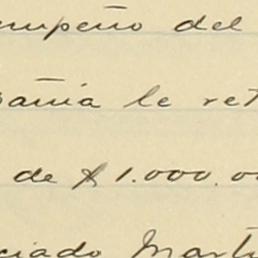 mpeño del
pañía le ret
de $1.000.00
ciado Martí